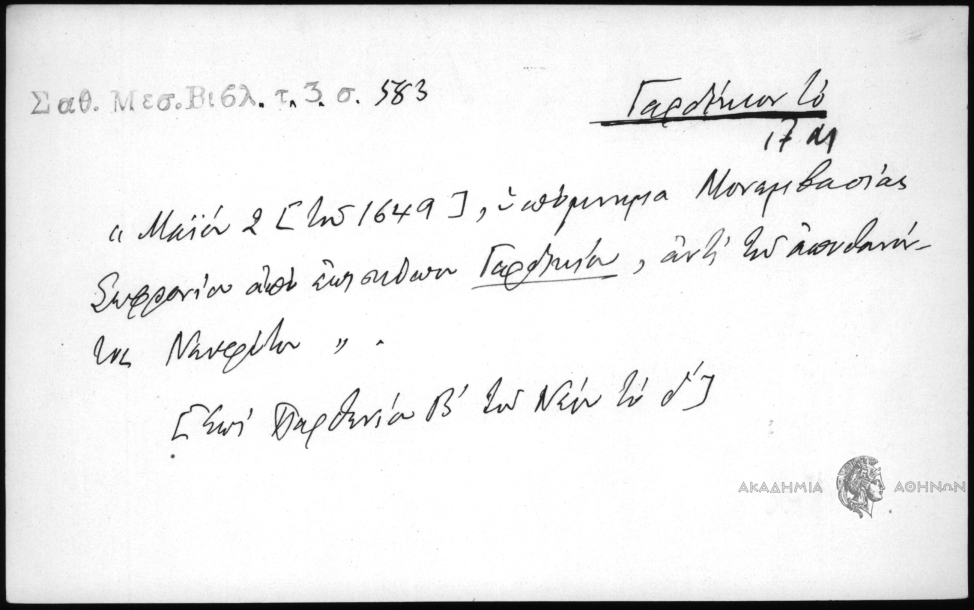 Σαθ. Μεσ. Βιβλ. τ. 3. σ. 583
Γαρδίκιον τό
17 αι
« Μαΐου 2 [τοῦ 1649], ὑπόμνημα Μονεμβασίας
Σωφρονίου ἀπὸ ἐπισκόπου Γαρδικίου, ἀντὶ τοῦ ἀποθανόν-
τος Νεοφύτου ».
[Ἐπὶ Παρθενίου Β΄ τοῦ Νέου τὸ δ΄]
ΑΚΑΔΗΜΙΑ ΑΘΗΝΩΝ